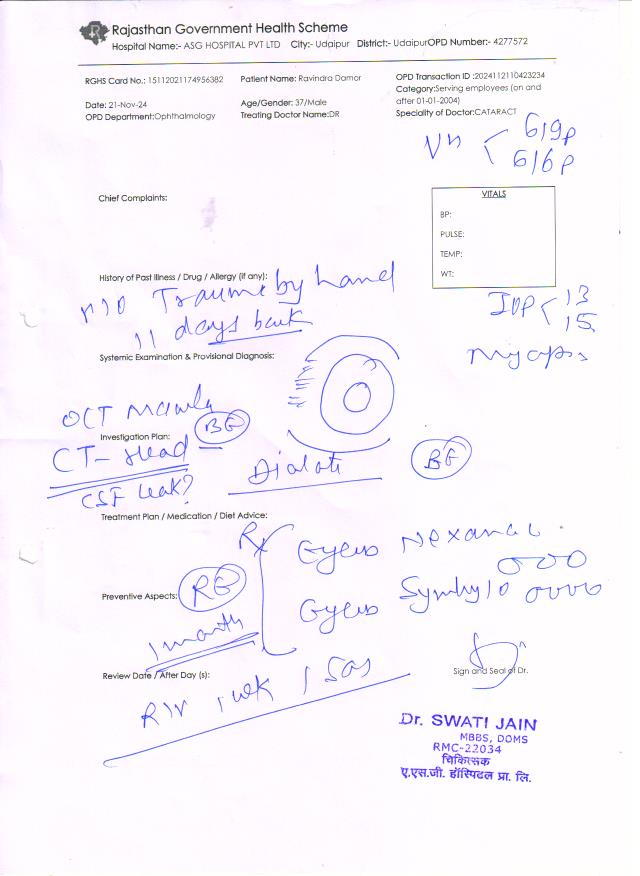 Rajasthan Government Health Scheme
Hospital Name:- ASG HOSPITAL PVT LTD City:- Udaipur District:- Udaipur OPD Number:- 4277572
RGHS Card No.: 15112021174956382 Patient Name: Ravindra Damor OPD Transaction ID :2024112110423234
Category:Serving employees (on and after 01-01-2004)
Date: 21-Nov-24 Age/Gender: 37/Male
OPD Department:Ophthalmology Treating Doctor Name:DR Speciality of Doctor:CATARACT
Vn < 6/9p
6/6p
Chief Complaints:
VITALS
BP:
PULSE:
TEMP:
WT:
History of Past Illness / Drug / Allergy (if any):
H/O Trauma by hand
11 days back
IOP < 13
15
Systemic Examination & Provisional Diagnosis:
OCT Macula (BE)
Investigation Plan:
CT- Head
CSF Leak?
Dialate (BE)
Treatment Plan / Medication / Diet Advice:
Rx
Eyes
Preventive Aspects: (RE)
Eyes
1 month
Review Date / After Day (s):
R/V 1 wk / SOS
Sign and Seal of Dr.
Dr. SWATI JAIN
MBBS, DOMS
RMC-22034
चिकित्सक
ए.एस.जी. हॉस्पिटल प्रा. लि.